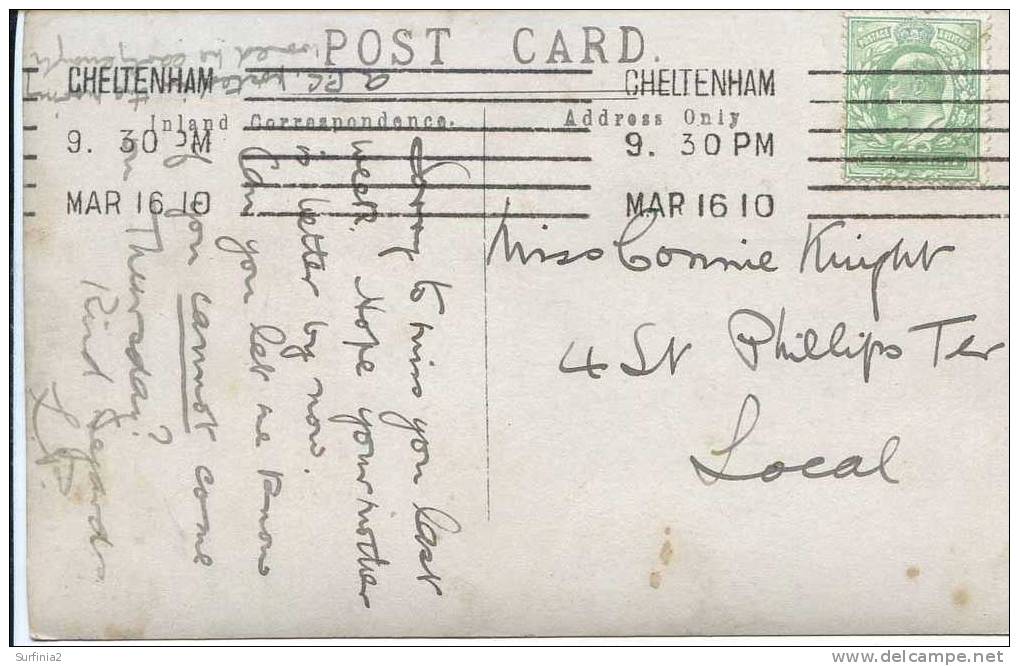 POST CARD.
CHELTENHAM
9. 30 PM
MAR 16 10
CHELTENHAM
9. 30 PM
MAR 16 10
Inland Correspondence.
Address Only
POSTAGE & REVENUE
Miss Connie Knight
4 St Phillips Ter
Local
Sorry to miss you last
week. Hope your mother
is better by now.
Can you let me know
if you cannot come
on Thursday?
Kind Regards
a P.C. posted
in the morning
would be early enough
Surfinia2
www.delcampe.net